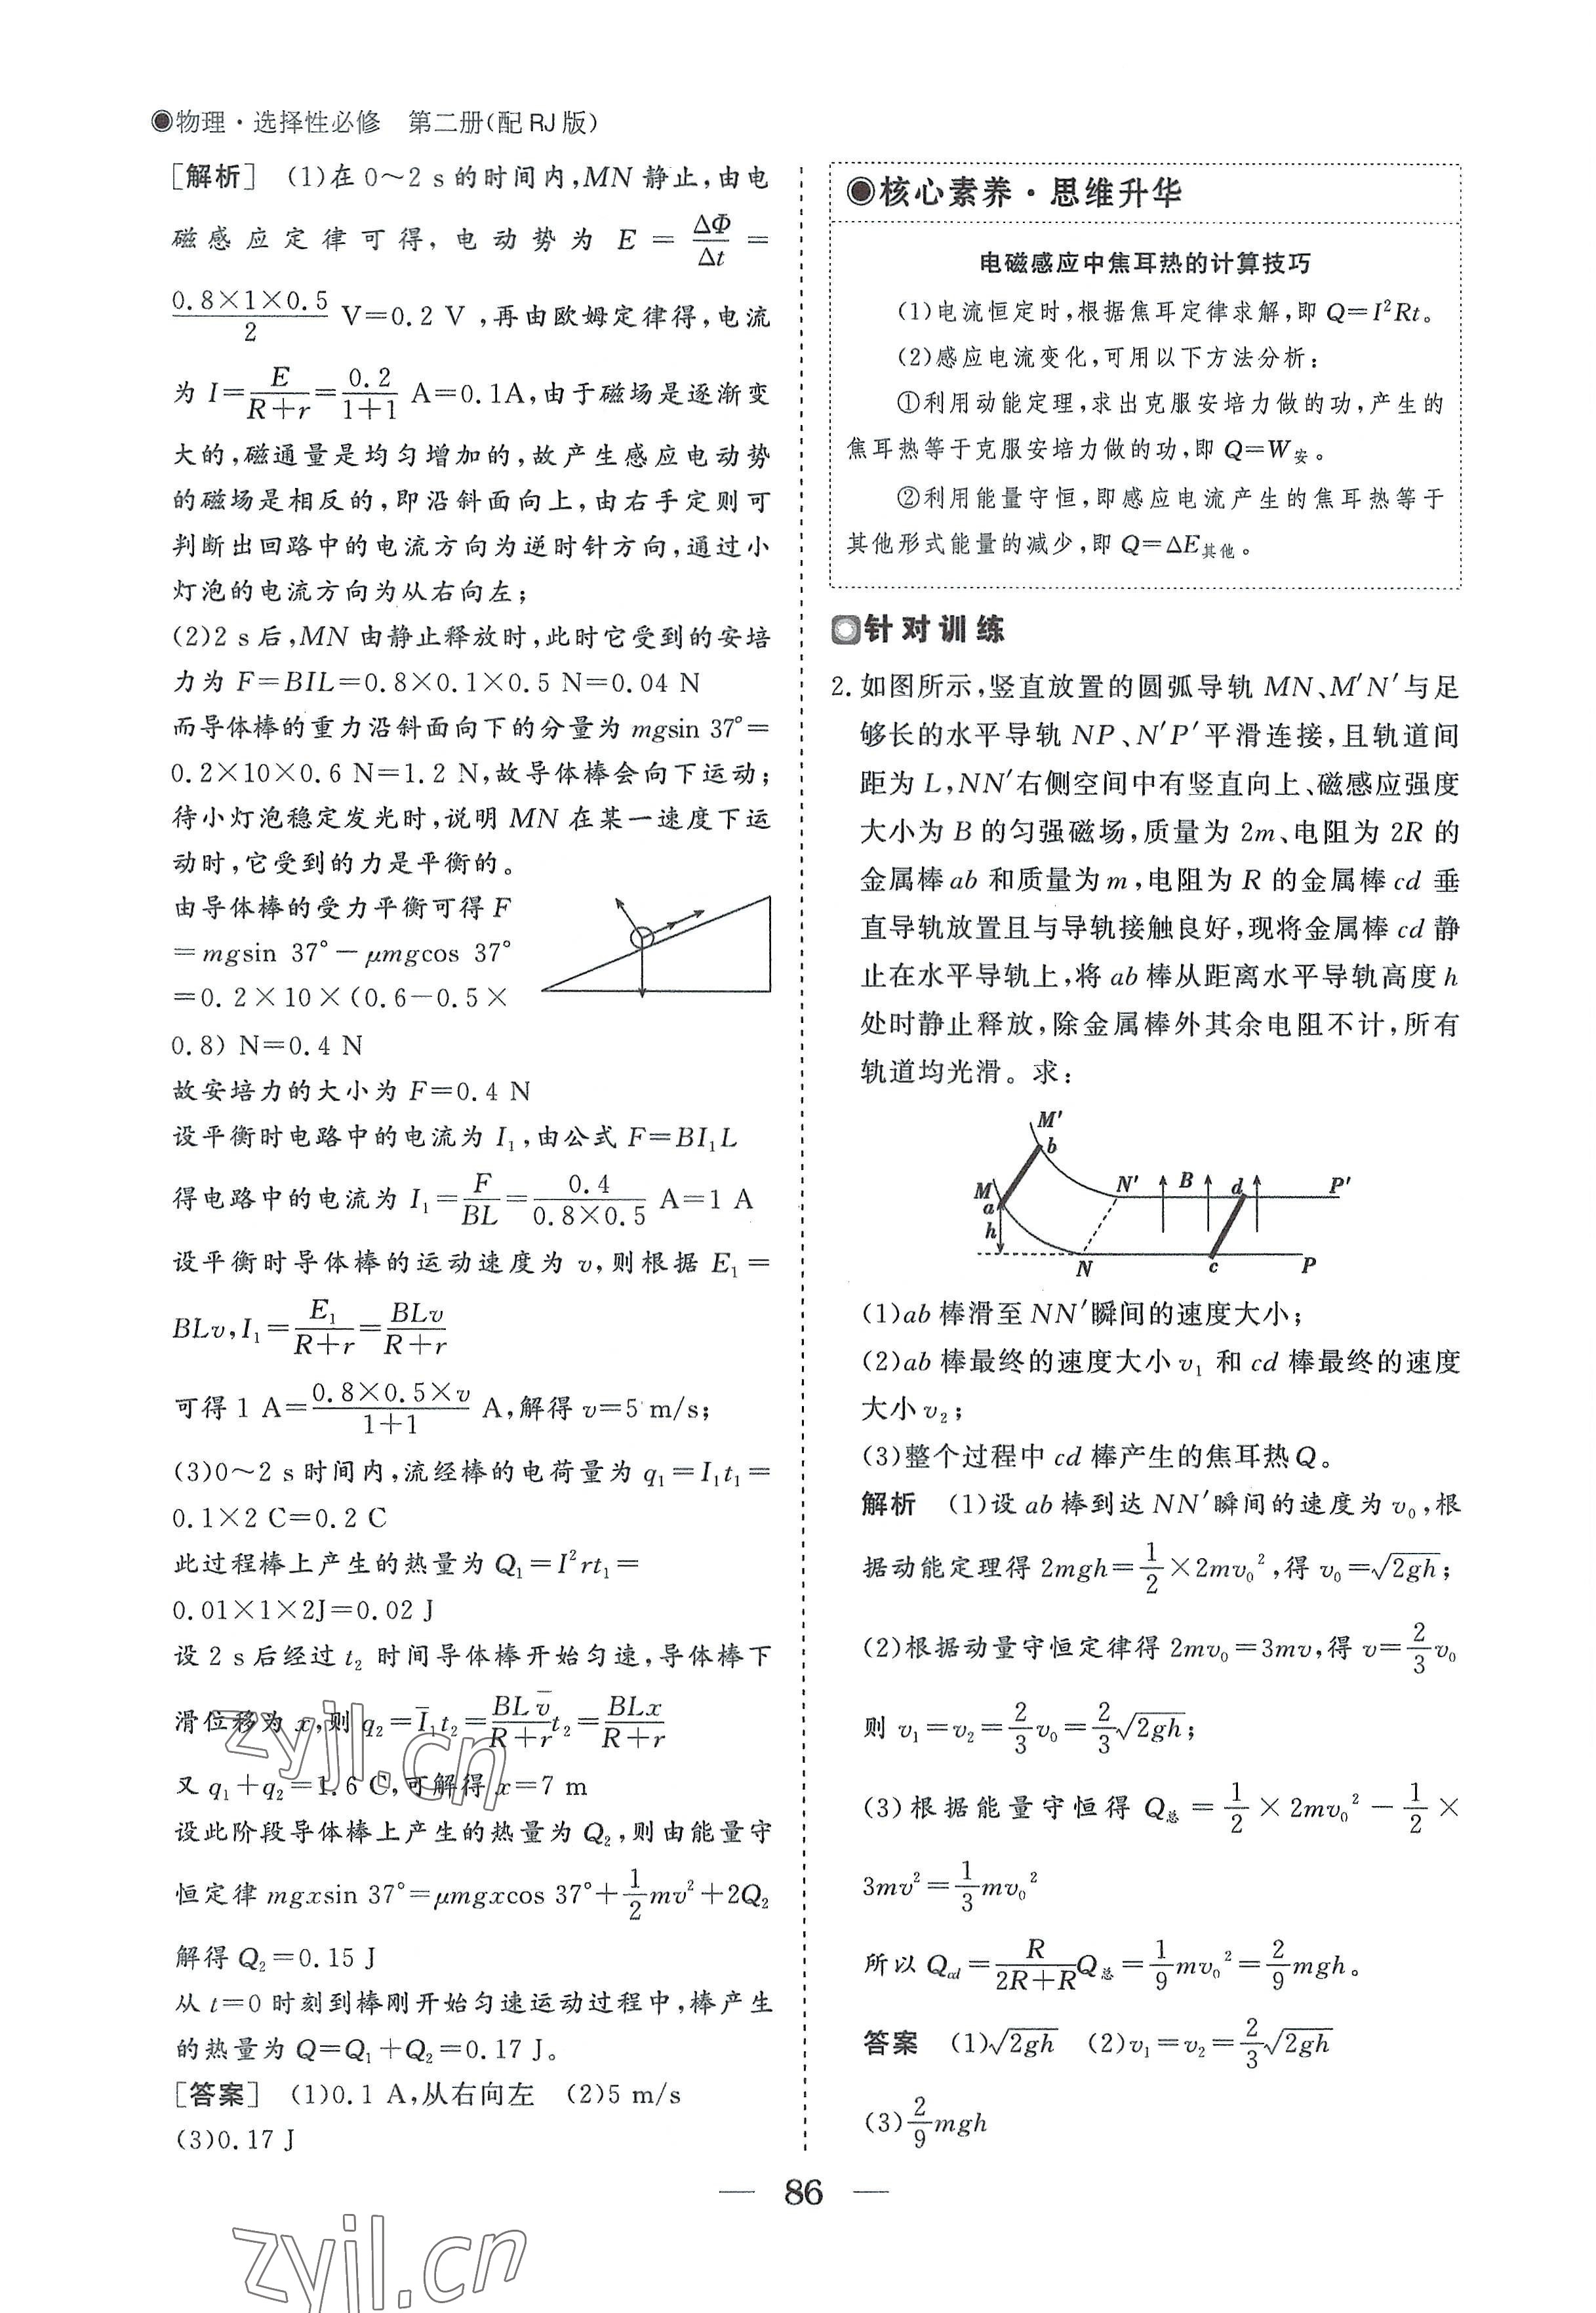 物理·选择性必修 第二册(配RJ版)
[解析] (1)在0～2 s的时间内,MN静止,由电
磁感应定律可得,电动势为 E=ΔΦ/Δt=
(0.8×1×0.5)/2 V=0.2 V,再由欧姆定律得,电流
为 I=E/(R+r)=0.2/(1+1) A=0.1A,由于磁场是逐渐变
大的,磁通量是均匀增加的,故产生感应电动势
的磁场是相反的,即沿斜面向上,由右手定则可
判断出回路中的电流方向为逆时针方向,通过小
灯泡的电流方向为从右向左;
(2)2 s后,MN由静止释放时,此时它受到的安培
力为 F=BIL=0.8×0.1×0.5 N=0.04 N
而导体棒的重力沿斜面向下的分量为 mgsin 37°=
0.2×10×0.6 N=1.2 N,故导体棒会向下运动;
待小灯泡稳定发光时,说明MN在某一速度下运
动时,它受到的力是平衡的。
由导体棒的受力平衡可得 F
=mgsin 37°−μmgcos 37°
=0.2×10×(0.6−0.5×
0.8) N=0.4 N
故安培力的大小为 F=0.4 N
设平衡时电路中的电流为 I₁,由公式 F=BI₁L
得电路中的电流为 I₁=F/(BL)=0.4/(0.8×0.5) A=1 A
设平衡时导体棒的运动速度为 v,则根据 E₁=
BLv,I₁=E₁/(R+r)=BLv/(R+r)
可得 1 A=(0.8×0.5×v)/(1+1) A,解得 v=5 m/s;
(3)0～2 s时间内,流经棒的电荷量为 q₁=I₁t₁=
0.1×2 C=0.2 C
此过程棒上产生的热量为 Q₁=I²rt₁=
0.01×1×2J=0.02 J
设2 s后经过 t₂ 时间导体棒开始匀速,导体棒下
滑位移为 x,则 q₂=I̅₁t₂=(BLv̅)/(R+r)t₂=BLx/(R+r)
又 q₁+q₂=1.6 C,可解得 x=7 m
设此阶段导体棒上产生的热量为 Q₂,则由能量守
恒定律 mgxsin 37°=μmgxcos 37°+1/2mv²+2Q₂
解得 Q₂=0.15 J
从 t=0 时刻到棒刚开始匀速运动过程中,棒产生
的热量为 Q=Q₁+Q₂=0.17 J。
[答案] (1)0.1 A,从右向左 (2)5 m/s
(3)0.17 J
核心素养·思维升华
电磁感应中焦耳热的计算技巧
(1)电流恒定时,根据焦耳定律求解,即 Q=I²Rt。
(2)感应电流变化,可用以下方法分析:
①利用动能定理,求出克服安培力做的功,产生的
焦耳热等于克服安培力做的功,即 Q=W安。
②利用能量守恒,即感应电流产生的焦耳热等于
其他形式能量的减少,即 Q=ΔE其他。
针对训练
2.如图所示,竖直放置的圆弧导轨MN、M′N′与足
够长的水平导轨NP、N′P′平滑连接,且轨道间
距为L,NN′右侧空间中有竖直向上、磁感应强度
大小为B的匀强磁场,质量为2m、电阻为2R的
金属棒ab和质量为m,电阻为R的金属棒cd垂
直导轨放置且与导轨接触良好,现将金属棒cd静
止在水平导轨上,将ab棒从距离水平导轨高度h
处时静止释放,除金属棒外其余电阻不计,所有
轨道均光滑。求:
M′
b
M
N′
B
d
P′
a
h
N
c
P
(1)ab棒滑至NN′瞬间的速度大小;
(2)ab棒最终的速度大小v₁和cd棒最终的速度
大小v₂;
(3)整个过程中cd棒产生的焦耳热Q。
解析 (1)设ab棒到达NN′瞬间的速度为v₀,根
据动能定理得 2mgh=1/2×2mv₀²,得 v₀=√(2gh);
(2)根据动量守恒定律得 2mv₀=3mv,得 v=2/3v₀
则 v₁=v₂=2/3v₀=2/3√(2gh);
(3)根据能量守恒得 Q总=1/2×2mv₀²−1/2×
3mv²=1/3mv₀²
所以 Qcd=R/(2R+R)Q总=1/9mv₀²=2/9mgh。
答案 (1)√(2gh) (2)v₁=v₂=2/3√(2gh)
(3)2/9mgh
— 86 —
zyjl.cn
zyjl.cn